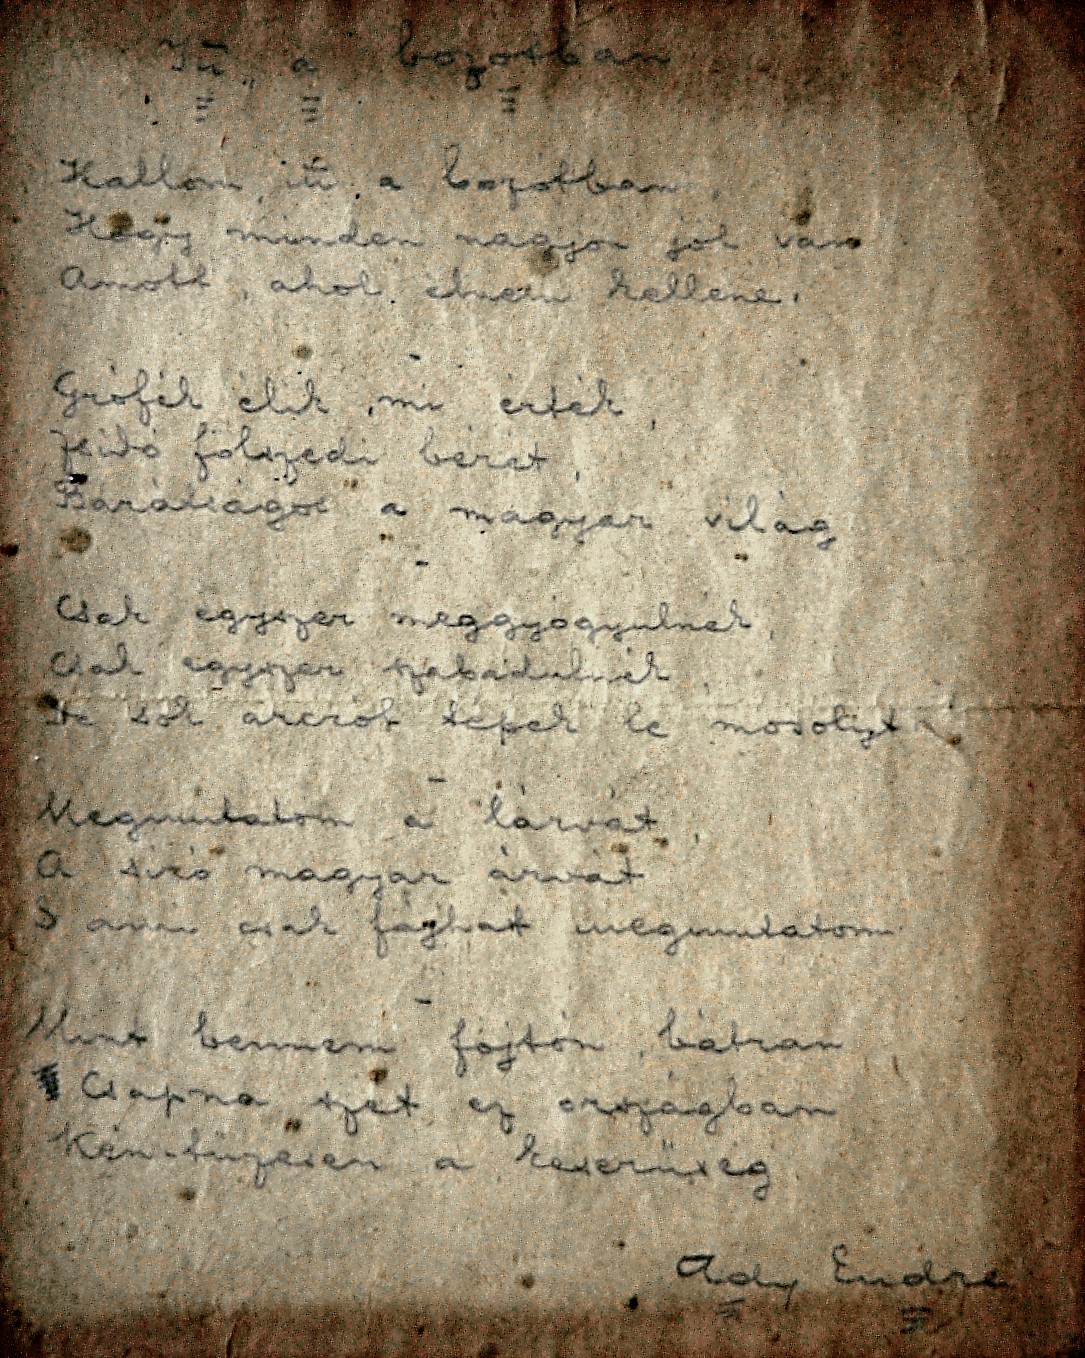 Itt, a bozótban
Hallom itt a bozótban,
Hogy minden nagyon jól van
Amott, ahol élnem kellene.
Grófék élik, mi érték,
Zsidó fölszedi bérét,
Barátságos a magyar világ
Csak egyszer meggyógyulnék,
Csak egyszer szabadulnék,
De sok arcról tépek le mosolyt
Megmutatom a lárvát,
A síró magyar árvát
S ami csak fájhat megmutatom
Mert bennem fojtón, bátran
Csapna szét ez országban
Kén-tüzesen a keserűség
Ady Endre